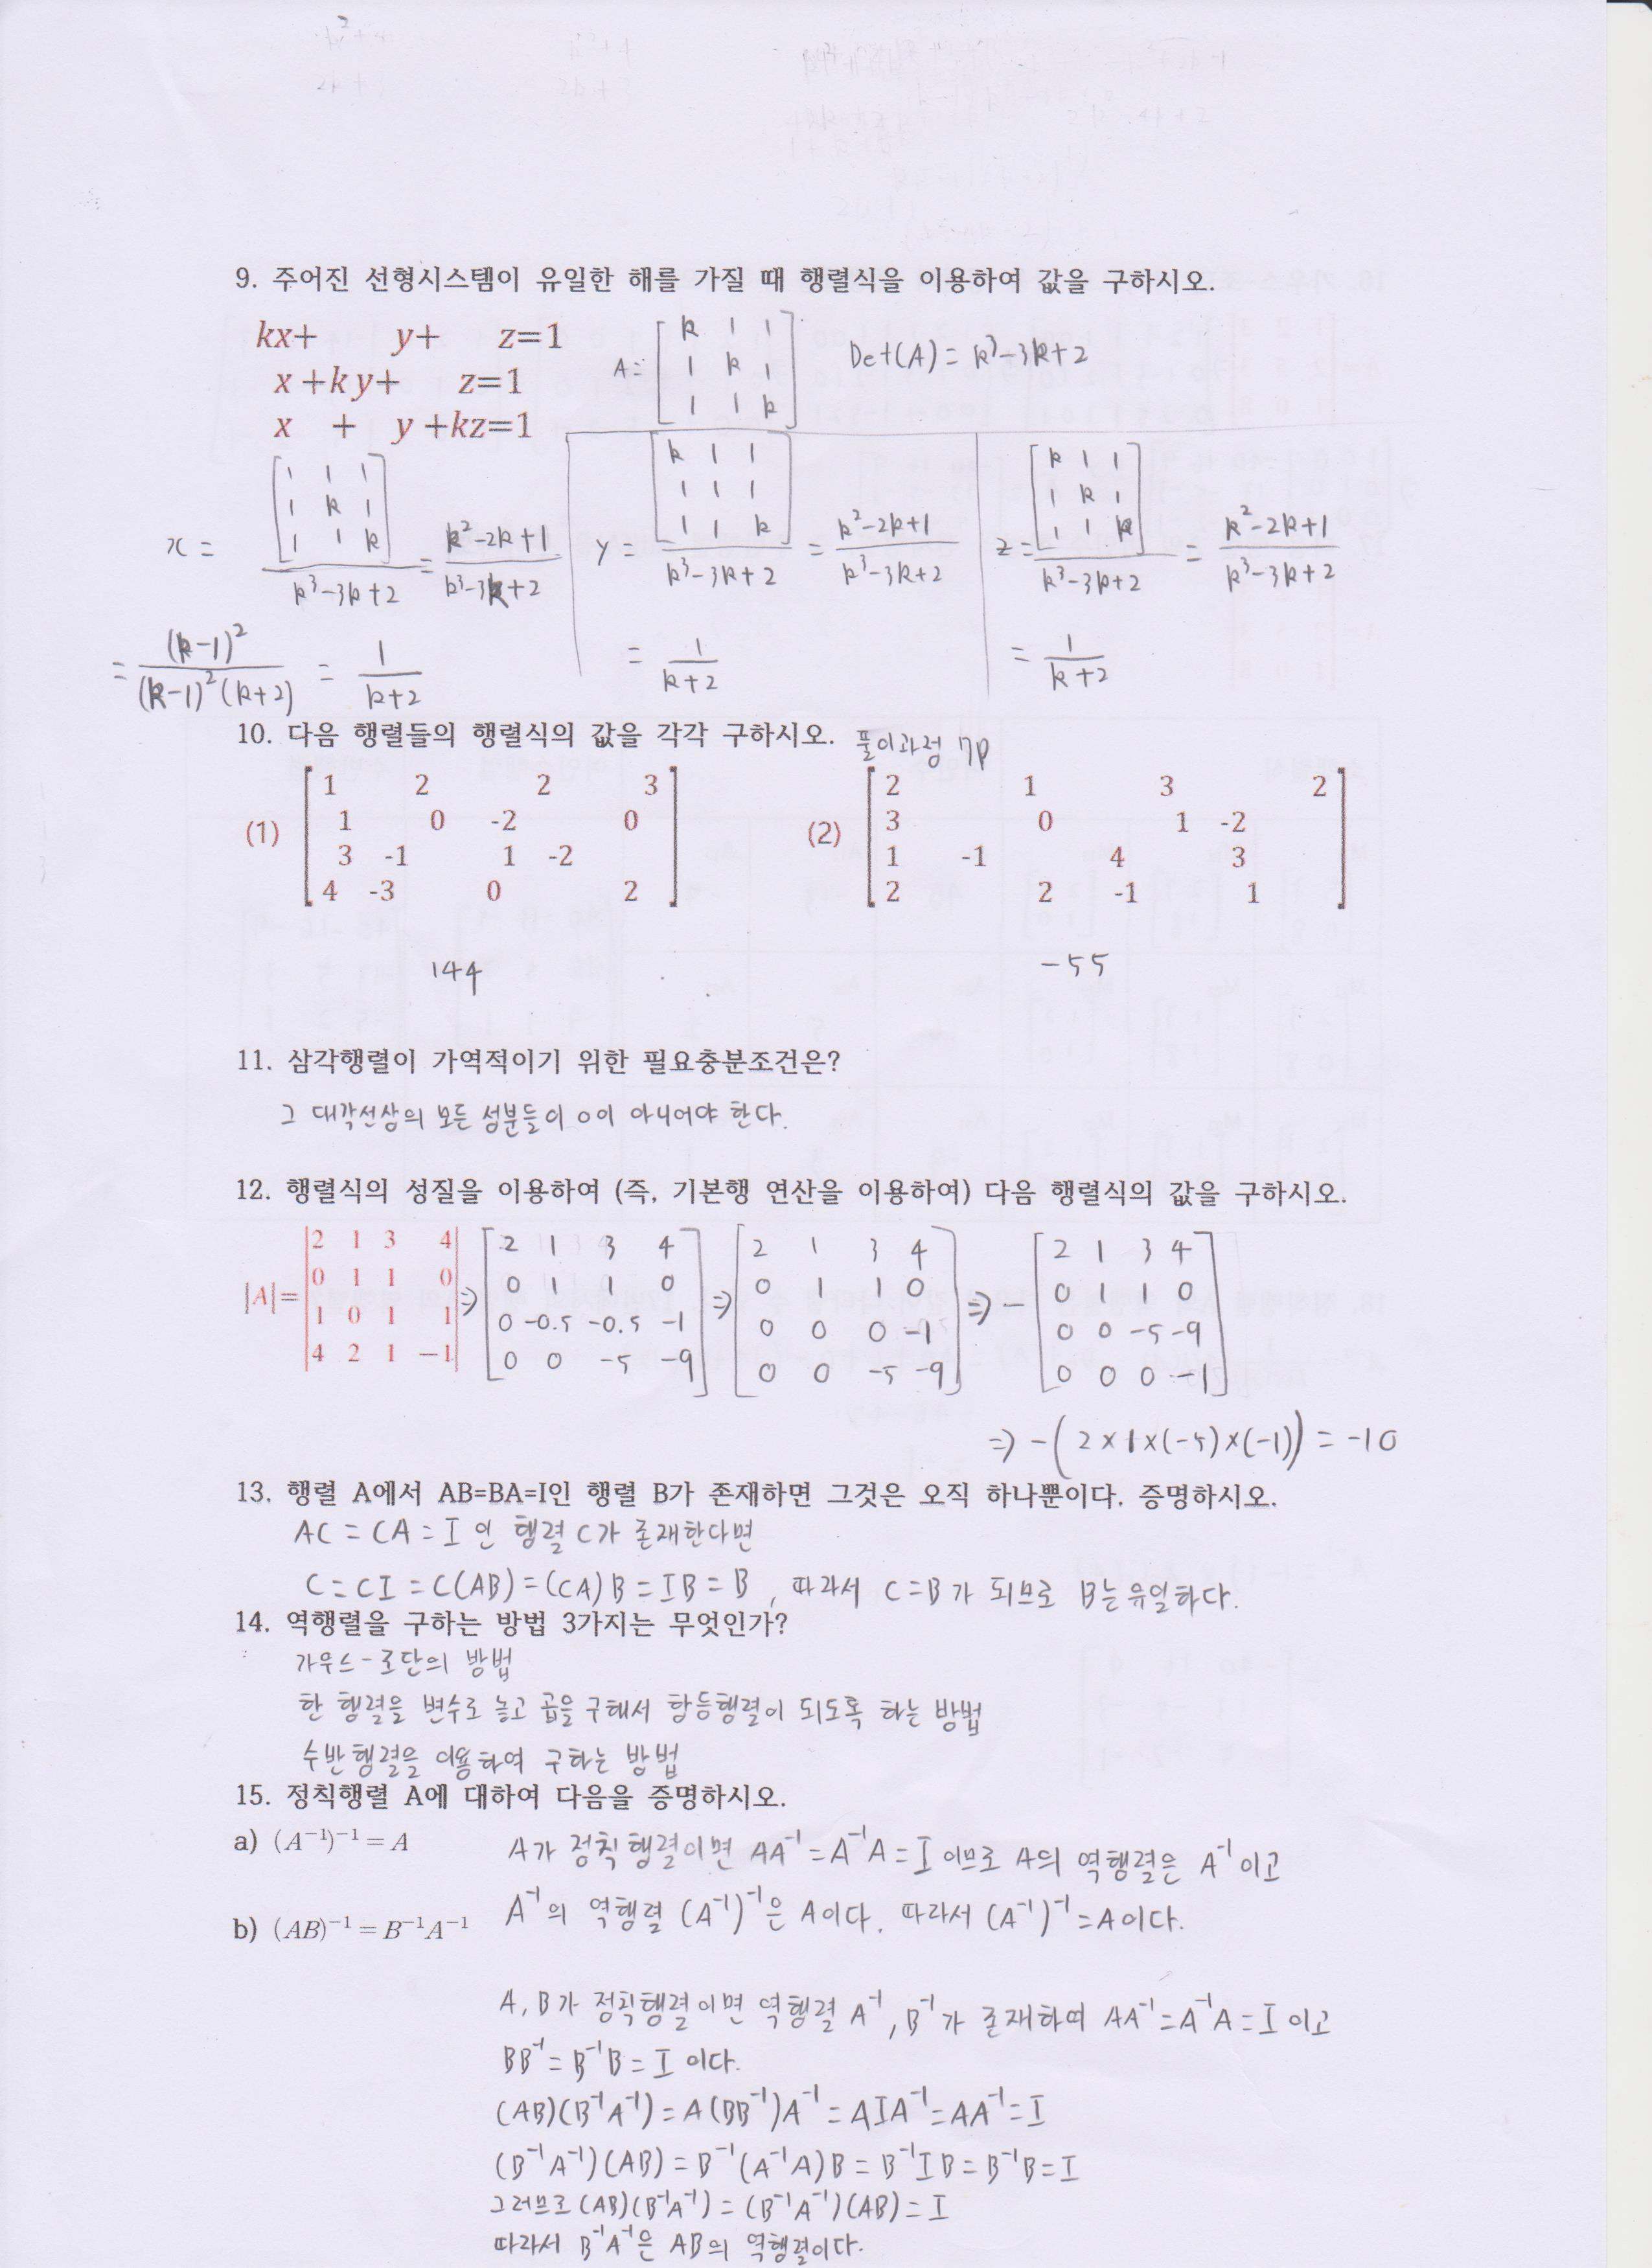 9. 주어진 선형시스템이 유일한 해를 가질 때 행렬식을 이용하여 값을 구하시오.
kx+ y+ z=1
x +ky+ z=1
x + y +kz=1
A= [k 1 1
1 k 1
1 1 k]
Det(A) = k³-3k+2
x = [1 1 1
1 k 1
1 1 k] / k³-3k+2 = k²-2k+1 / k³-3k+2
= (k-1)² / (k-1)²(k+2) = 1 / k+2
y = [k 1 1
1 1 1
1 1 k] / k³-3k+2 = k²-2k+1 / k³-3k+2
= 1 / k+2
z = [k 1 1
1 k 1
1 1 k] / k³-3k+2 = k²-2k+1 / k³-3k+2
= 1 / k+2
10. 다음 행렬들의 행렬식의 값을 각각 구하시오. 풀이과정 7p
(1) [1 2 2 3
1 0 -2 0
3 -1 1 -2
4 -3 0 2]
(2) [2 1 3 2
3 0 1 -2
1 -1 4 3
2 2 -1 1]
144
-55
11. 삼각행렬이 가역적이기 위한 필요충분조건은?
그 대각선상의 모든 성분들이 0이 아니어야 한다.
12. 행렬식의 성질을 이용하여 (즉, 기본행 연산을 이용하여) 다음 행렬식의 값을 구하시오.
|A|= |2 1 3 4
0 1 1 0
1 0 1 1
4 2 1 −1|
⇒ [2 1 3 4
0 1 1 0
0 -0.5 -0.5 -1
0 0 -5 -9]
⇒ [2 1 3 4
0 1 1 0
0 0 0 -1
0 0 -5 -9]
⇒ - [2 1 3 4
0 1 1 0
0 0 -5 -9
0 0 0 -1]
⇒ -(2×1×(-5)×(-1)) = -10
13. 행렬 A에서 AB=BA=I인 행렬 B가 존재하면 그것은 오직 하나뿐이다. 증명하시오.
AC = CA = I 인 행렬 C가 존재한다면
C = CI = C(AB) = (CA)B = IB = B , 따라서 C=B가 되므로 B는 유일하다.
14. 역행렬을 구하는 방법 3가지는 무엇인가?
가우스-조단의 방법
한 행렬을 변수로 놓고 곱을 구해서 항등행렬이 되도록 하는 방법
수반행렬을 이용하여 구하는 방법
15. 정칙행렬 A에 대하여 다음을 증명하시오.
a) (A⁻¹)⁻¹ = A
A가 정칙행렬이면 AA⁻¹ = A⁻¹A = I 이므로 A의 역행렬은 A⁻¹이고
A⁻¹의 역행렬 (A⁻¹)⁻¹은 A이다. 따라서 (A⁻¹)⁻¹ = A이다.
b) (AB)⁻¹ = B⁻¹A⁻¹
A, B가 정칙행렬이면 역행렬 A⁻¹, B⁻¹가 존재하여 AA⁻¹ = A⁻¹A = I 이고
BB⁻¹ = B⁻¹B = I 이다.
(AB)(B⁻¹A⁻¹) = A(BB⁻¹)A⁻¹ = AIA⁻¹ = AA⁻¹ = I
(B⁻¹A⁻¹)(AB) = B⁻¹(A⁻¹A)B = B⁻¹IB = B⁻¹B = I
그러므로 (AB)(B⁻¹A⁻¹) = (B⁻¹A⁻¹)(AB) = I
따라서 B⁻¹A⁻¹은 AB의 역행렬이다.